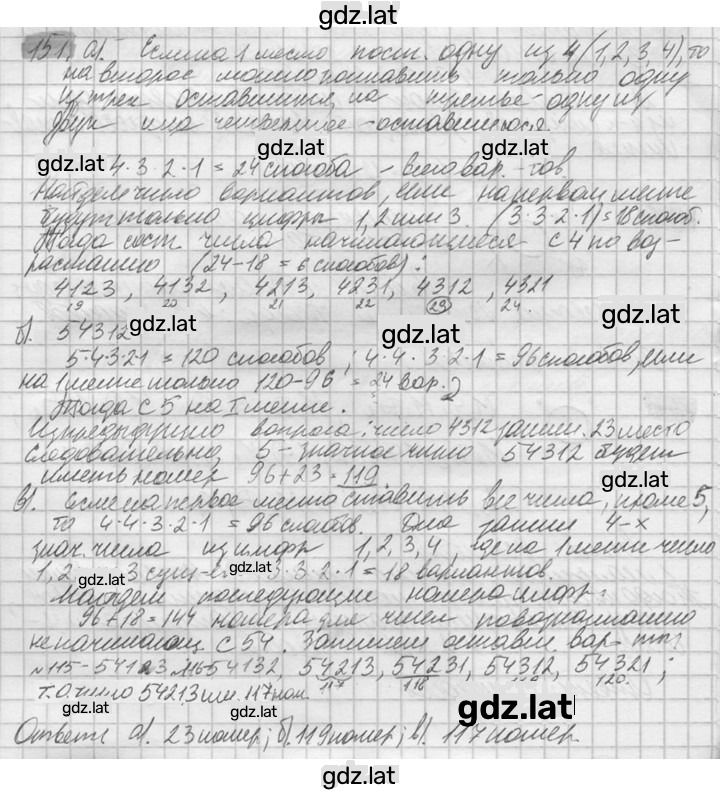 gdz.latt
151. а). Если на 1 место пост. одну из 4 (1, 2, 3, 4), то
на второе можно поставить только одну
из трех оставшихся, на третье - одну из
двух и на четвертое - оставшуюся.
gdz.latt gdz.latt
4·3·2·1 = 24 способа - всего вар-тов.
gdz.latt
Найдем число вариантов, если на первом месте
будут только цифры 1, 2 или 3. (3·3·2·1) = 18 способ.
Тогда сост числа начинающиеся с 4 по воз-
растанию (24-18 = 6 способов):
gdz.latt gdz.latt
4123, 4132, 4213, 4231, 4312, 4321
19 20 21 22 23 24.
gdz.latt gdz.latt gdz.latt
б). 54312
5·4·3·2·1 = 120 способов; 4·4·3·2·1 = 96 способов, если
на 1 месте только 120-96 = 24 вар.
Тогда с 5 на I месте.
Из предыдущего вопроса: число 4312 заним. 23 место
следовательно, 5-значное число 54312 будет
иметь номер 96+23 = 119.
gdz.latt gdz.latt
в). Если на первое место ставить все числа, кроме 5,
то 4·4·3·2·1 = 96 способов. Для 4-х
знач. числа из цифр 1, 2, 3, 4, где на 1 месте число
1, 2 3 3·3·2·1 = 18 вариантов.
gdz.latt gdz.latt
Найдем последующие номера цифр:
96+18 = 144 номера для чисел по возрастанию
не начинающ с 54. Запишем оставш. вар-ты:
№115-54123 №116-54132, 54213, 54231, 54312, 54321;
117 118 119 120.
т.о. число 54213 им. 117 ном.
gdz.latt gdz.latt gdz.latt
Ответ: а). 23 номер; б). 119 номер; в). 117 номер.
gdz.latt